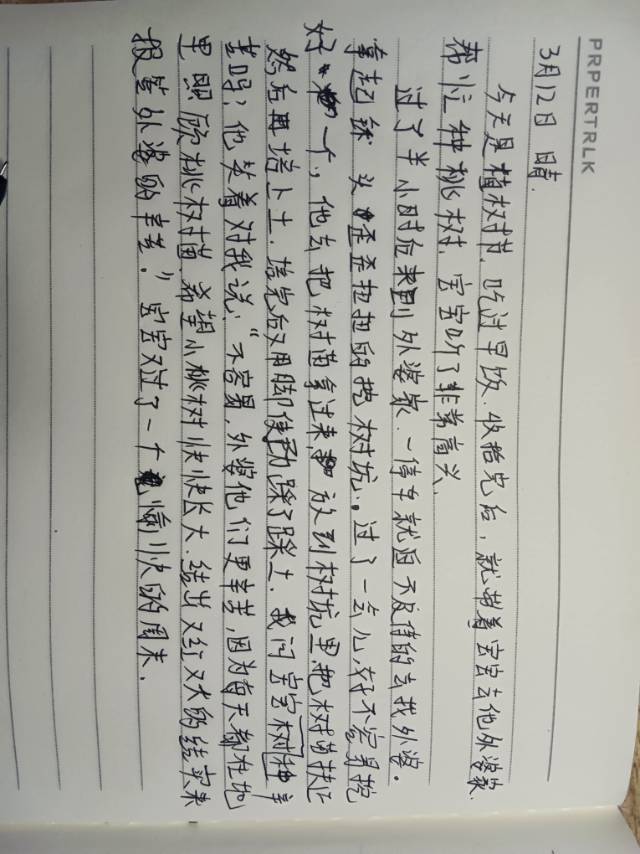 PRPERTRLK
3月12日 晴.
今天是植树节. 吃过早饭. 收拾完后, 就带着宝宝去他外婆家
帮忙种桃树. 宝宝听了非常高兴.
过了半小时后来到外婆家. 一停车就迫不及待的去找外婆。
拿起锹头歪歪扭扭的挖树坑. 过了一会儿, 好不容易挖
好一个, 他去把树苗拿过来, 放到树坑里把树苗扶正
然后再培上土. 培完后又用脚使劲踩了踩土. 我问宝宝树种辛
苦吗? 他笑着对我说: “不容易, 外婆他们更辛苦, 因为每天都在地
里照顾桃树苗. 希望小桃树快快长大. 结出又红又大的结实来
报答外婆的辛苦. ” 宝宝又过了一个愉快的周末.